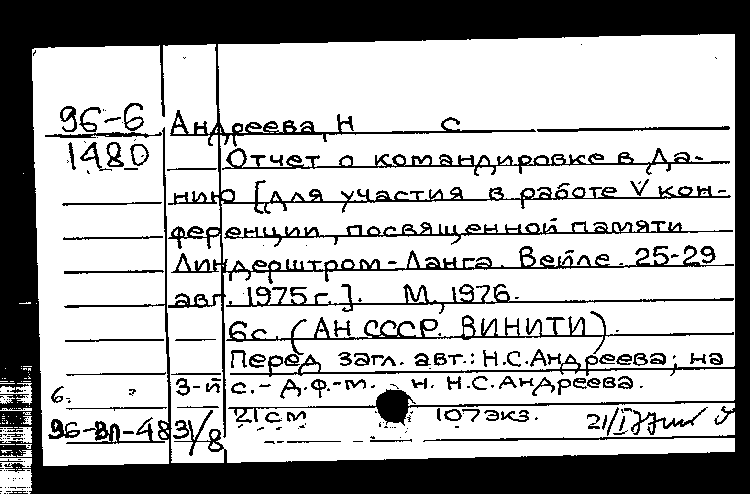 96-6 Андреева, Н С
1480 Отчет о командировке в Да-
нию [для участия в работе V кон-
ференции, посвященной памяти
Линдерштром-Ланга. Вейле. 25-29
авг. 1975 г.]. М., 1976.
6 с. (АН СССР. ВИНИТИ).
Перед загл. авт.: Н.С. Андреева; на
6. 3-й с. - д.ф.-м. н. Н.С. Андреева.
96-вл-483/8 21 см 107 экз. 21/I 77